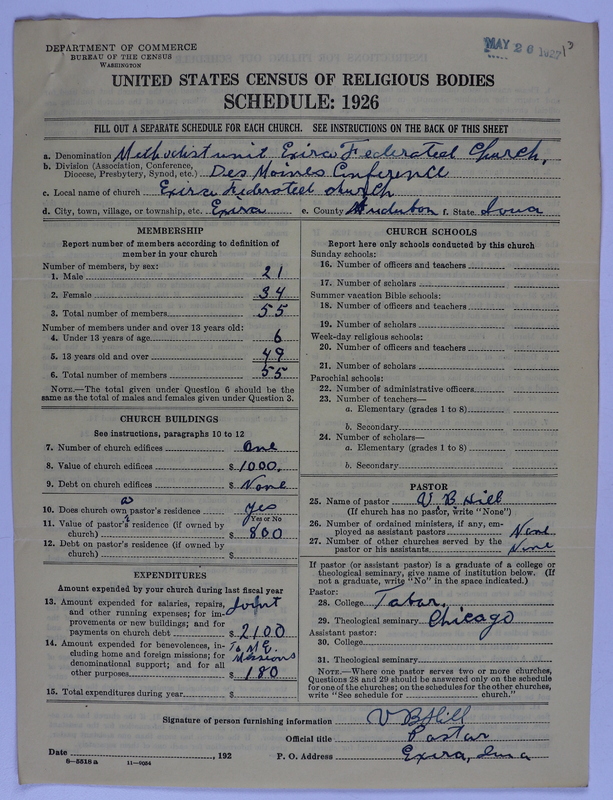 DEPARTMENT OF COMMERCE
BUREAU OF THE CENSUS
WASHINGTON
MAY 26 1927
UNITED STATES CENSUS OF RELIGIOUS BODIES
SCHEDULE: 1926
FILL OUT A SEPARATE SCHEDULE FOR EACH CHURCH. SEE INSTRUCTIONS ON THE BACK OF THIS SHEET
a. Denomination Methodist unit Exira Federated Church,
b. Division (Association, Conference, Diocese, Presbytery, Synod, etc.) Des Moines Conference
c. Local name of church Exira Federated church
d. City, town, village, or township, etc. Exira e. County Audubon f. State Iowa
MEMBERSHIP
Report number of members according to definition of member in your church
Number of members, by sex:
1. Male 21
2. Female 34
3. Total number of members 55
Number of members under and over 13 years old:
4. Under 13 years of age 6
5. 13 years old and over 49
6. Total number of members 55
NOTE.—The total given under Question 6 should be the same as the total of males and females given under Question 3.
CHURCH BUILDINGS
See instructions, paragraphs 10 to 12
7. Number of church edifices One
8. Value of church edifices $1000.
9. Debt on church edifices $ None
10. Does church own a pastor's residence yes
Yes or No
11. Value of pastor's residence (if owned by church) $ 800
12. Debt on pastor's residence (if owned by church) $
EXPENDITURES
Amount expended by church during last fiscal year
13. Amount expended for salaries, repairs, and other running expenses; for improvements or new buildings; and for payments on church debt Joint $ 2100
14. Amount expended for benevolences, including home and foreign missions; for denominational support; and for all other purposes To M.E. Missions $ 180
15. Total expenditures during year $
CHURCH SCHOOLS
Report here only schools conducted by this church
Sunday schools:
16. Number of officers and teachers
17. Number of scholars
Summer vacation Bible schools:
18. Number of officers and teachers
19. Number of scholars
Week-day religious schools:
20. Number of officers and teachers
21. Number of scholars
Parochial schools:
22. Number of administrative officers
23. Number of teachers—
a. Elementary (grades 1 to 8)
b. Secondary
24. Number of scholars—
a. Elementary (grades 1 to 8)
b. Secondary
PASTOR
25. Name of pastor V B Hill
(If church has no pastor, write "None")
26. Number of ordained ministers, if any, employed as assistant pastors None
27. Number of other churches served by the pastor or his assistants None
If pastor (or assistant pastor) is a graduate of a college or theological seminary, give name of institution below. (If not a graduate, write "No" in the space indicated.)
Pastor:
28. College Tabor,
29. Theological seminary Chicago
Assistant pastor:
30. College
31. Theological seminary
NOTE.—Where one pastor serves two or more churches, Questions 28 and 29 should be answered only on the schedule for one of the churches; on the schedules for the other churches, write "See schedule for church."
Signature of person furnishing information V B Hill
Official title Pastor
Date , 192 P. O. Address Exira, Iowa
8-5518 a 11-9054